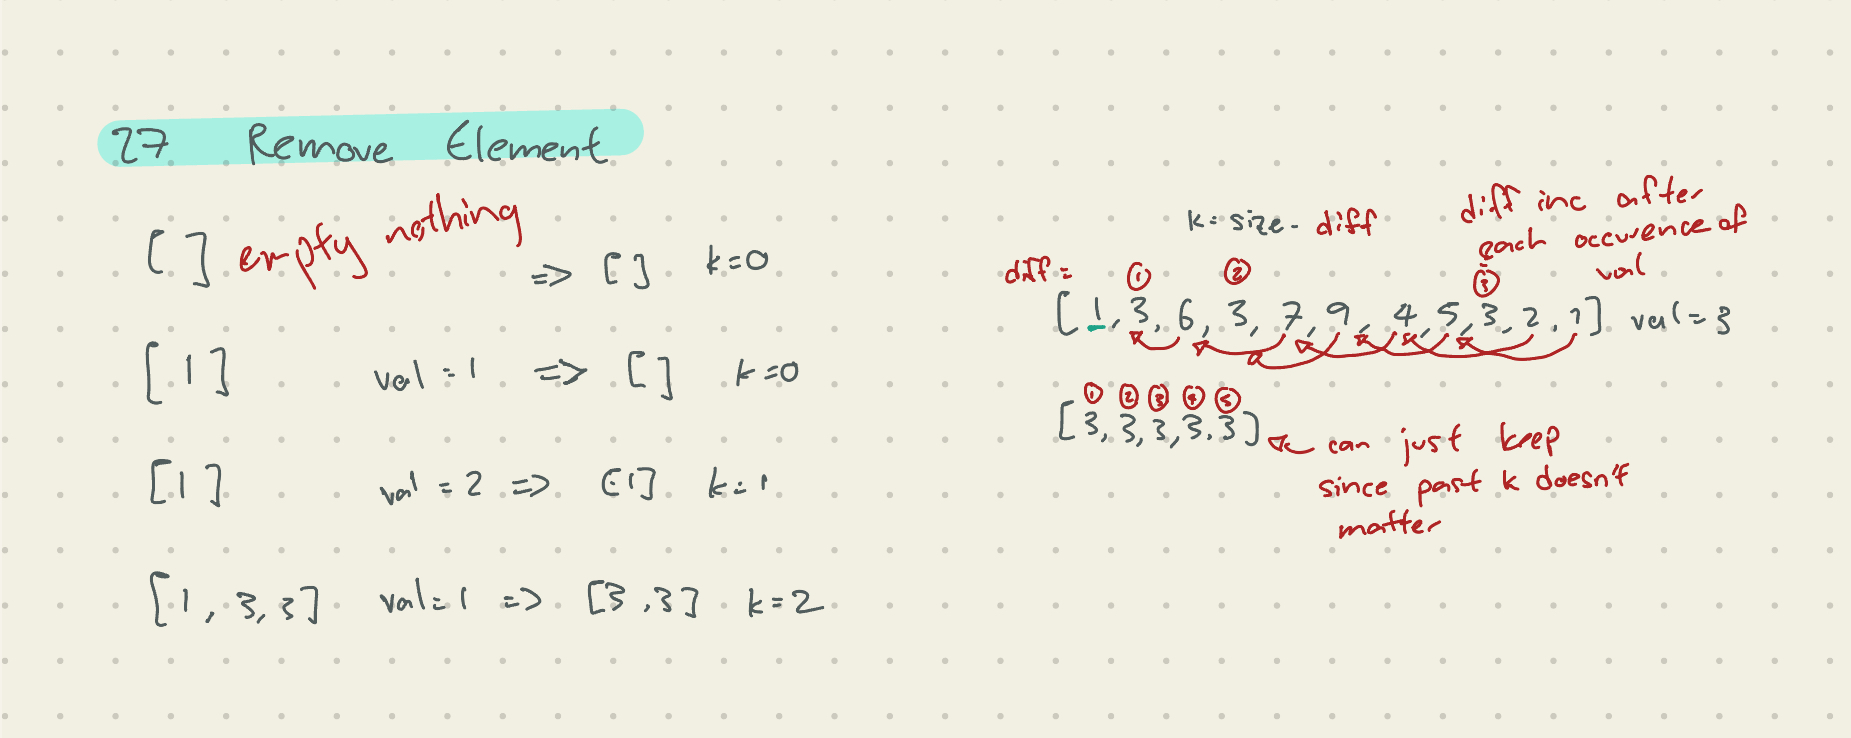 27 Remove Element
[ ] empty nothing => [ ] k=0
[ 1 ] val = 1 => [ ] k=0
[ 1 ] val = 2 => [1] k=1
[ 1, 3, 3 ] val=1 => [3, 3] k=2
k = size - diff
diff inc after
each occurence of
val
diff = ① ② ③
[ 1, 3, 6, 3, 7, 9, 4, 5, 3, 2, 1 ] val = 3
① ② ③ ④ ⑤
[ 3, 3, 3, 3, 3 ]
can just keep
since past k doesn't
matter